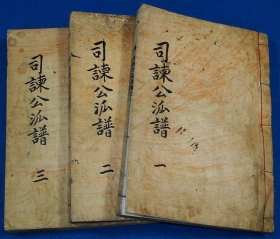 司諫公派譜 一
司諫公派譜 二
司諫公派譜 三